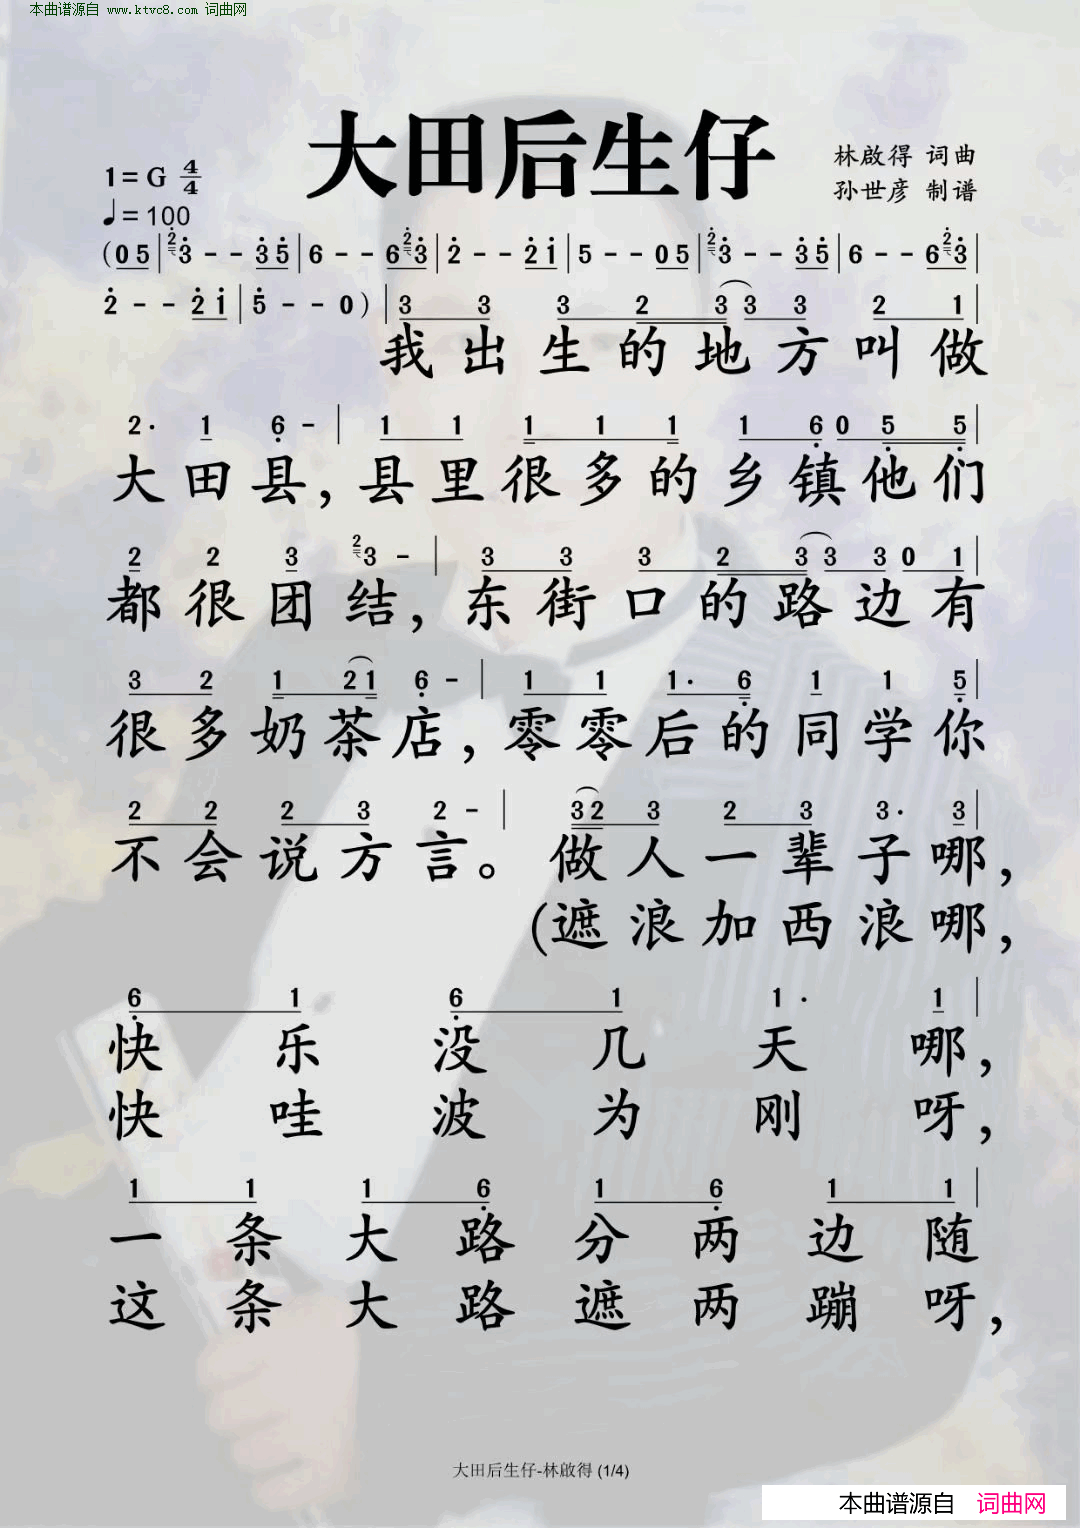 本曲谱源自 www.ktvc8.com 词曲网
大田后生仔
林啟得 词曲
孙世彦 制谱
1=G 4/4
♩=100
(05|23--35|6--623|2--21|5--05|23--35|6--623|
2--21|5--0)|3 3 3 2 3 3 3 2 1|
我出生的地方叫做
2· 1 6 -|1 1 1 1 1 1 6 0 5 5|
大田县,县里很多的乡镇他们
2 2 3 23 -|3 3 3 2 3 3 3 0 1|
都很团结,东街口的路边有
3 2 1 2 1 6 -|1 1 1· 6 1 1 5|
很多奶茶店,零零后的同学你
2 2 2 3 2 -|3 2 3 2 3 3· 3|
不会说方言。做人一辈子哪,
(遮浪加西浪哪,
6 1 6 1 1· 1|
快乐没几天哪,
快哇波为刚呀,
1 1 1 6 1 6 1 1|
一条大路分两边随
这条大路遮两蹦呀,
大田后生仔-林啟得 (1/4)
本曲谱源自 词曲网